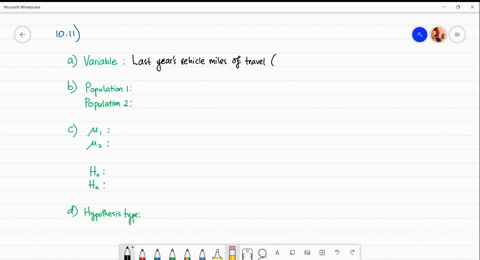 Microsoft Whiteboard
10.11)
a) Variable : Last year's vehicle miles of travel (
b) Population 1:
Population 2:
c) μ₁ :
μ₂ :
H₀ :
Hₐ :
d) Hypothesis type: